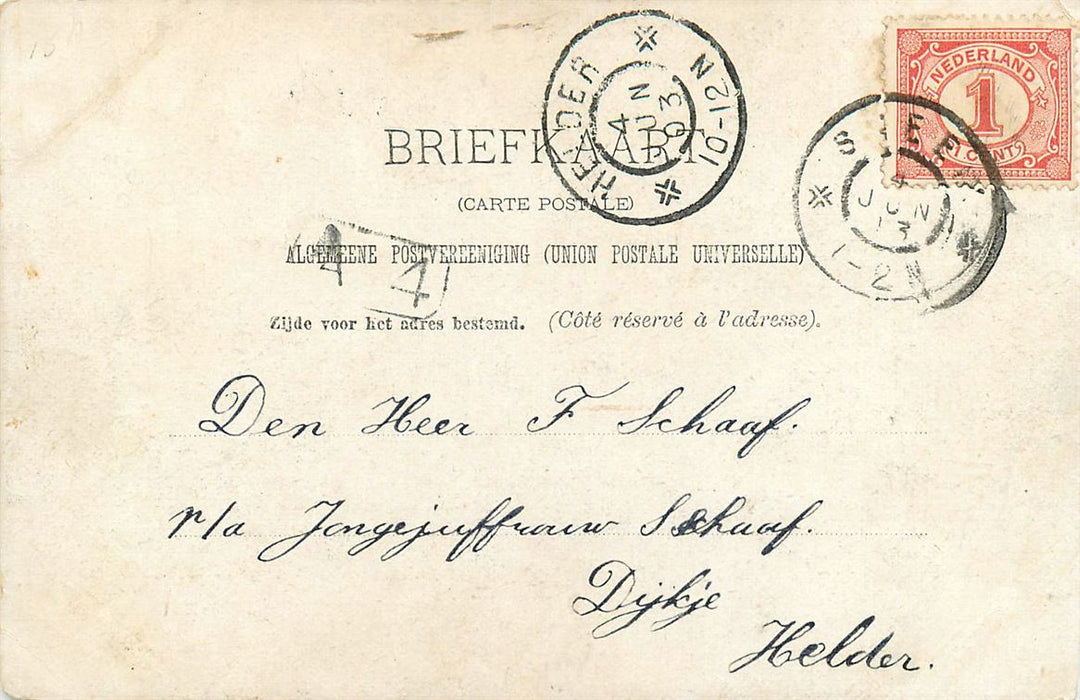 NEDERLAND
1
1 CENT
HELDER
4
JUN
03
10-12N
BRIEFKAART
4
JUN
03
1-2N
(CARTE POSTALE)
ALGEMEENE POSTVEREENIGING (UNION POSTALE UNIVERSELLE)
4
Zijde voor het adres bestemd. (Côté réservé à l'adresse).
Den Heer F Schaaf.
p/a Jongejuffrouw Schaaf.
Dijkje
Helder.